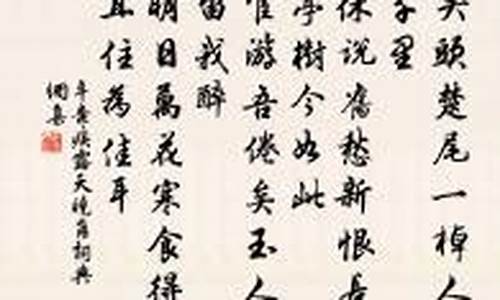 头楚尾一棹人
千里
休说旧愁新恨长
亭树今如此
游吾倦矣玉人
留我醉
明日万花寒食得
且住为佳耳
辛弃疾霜天晓角词典